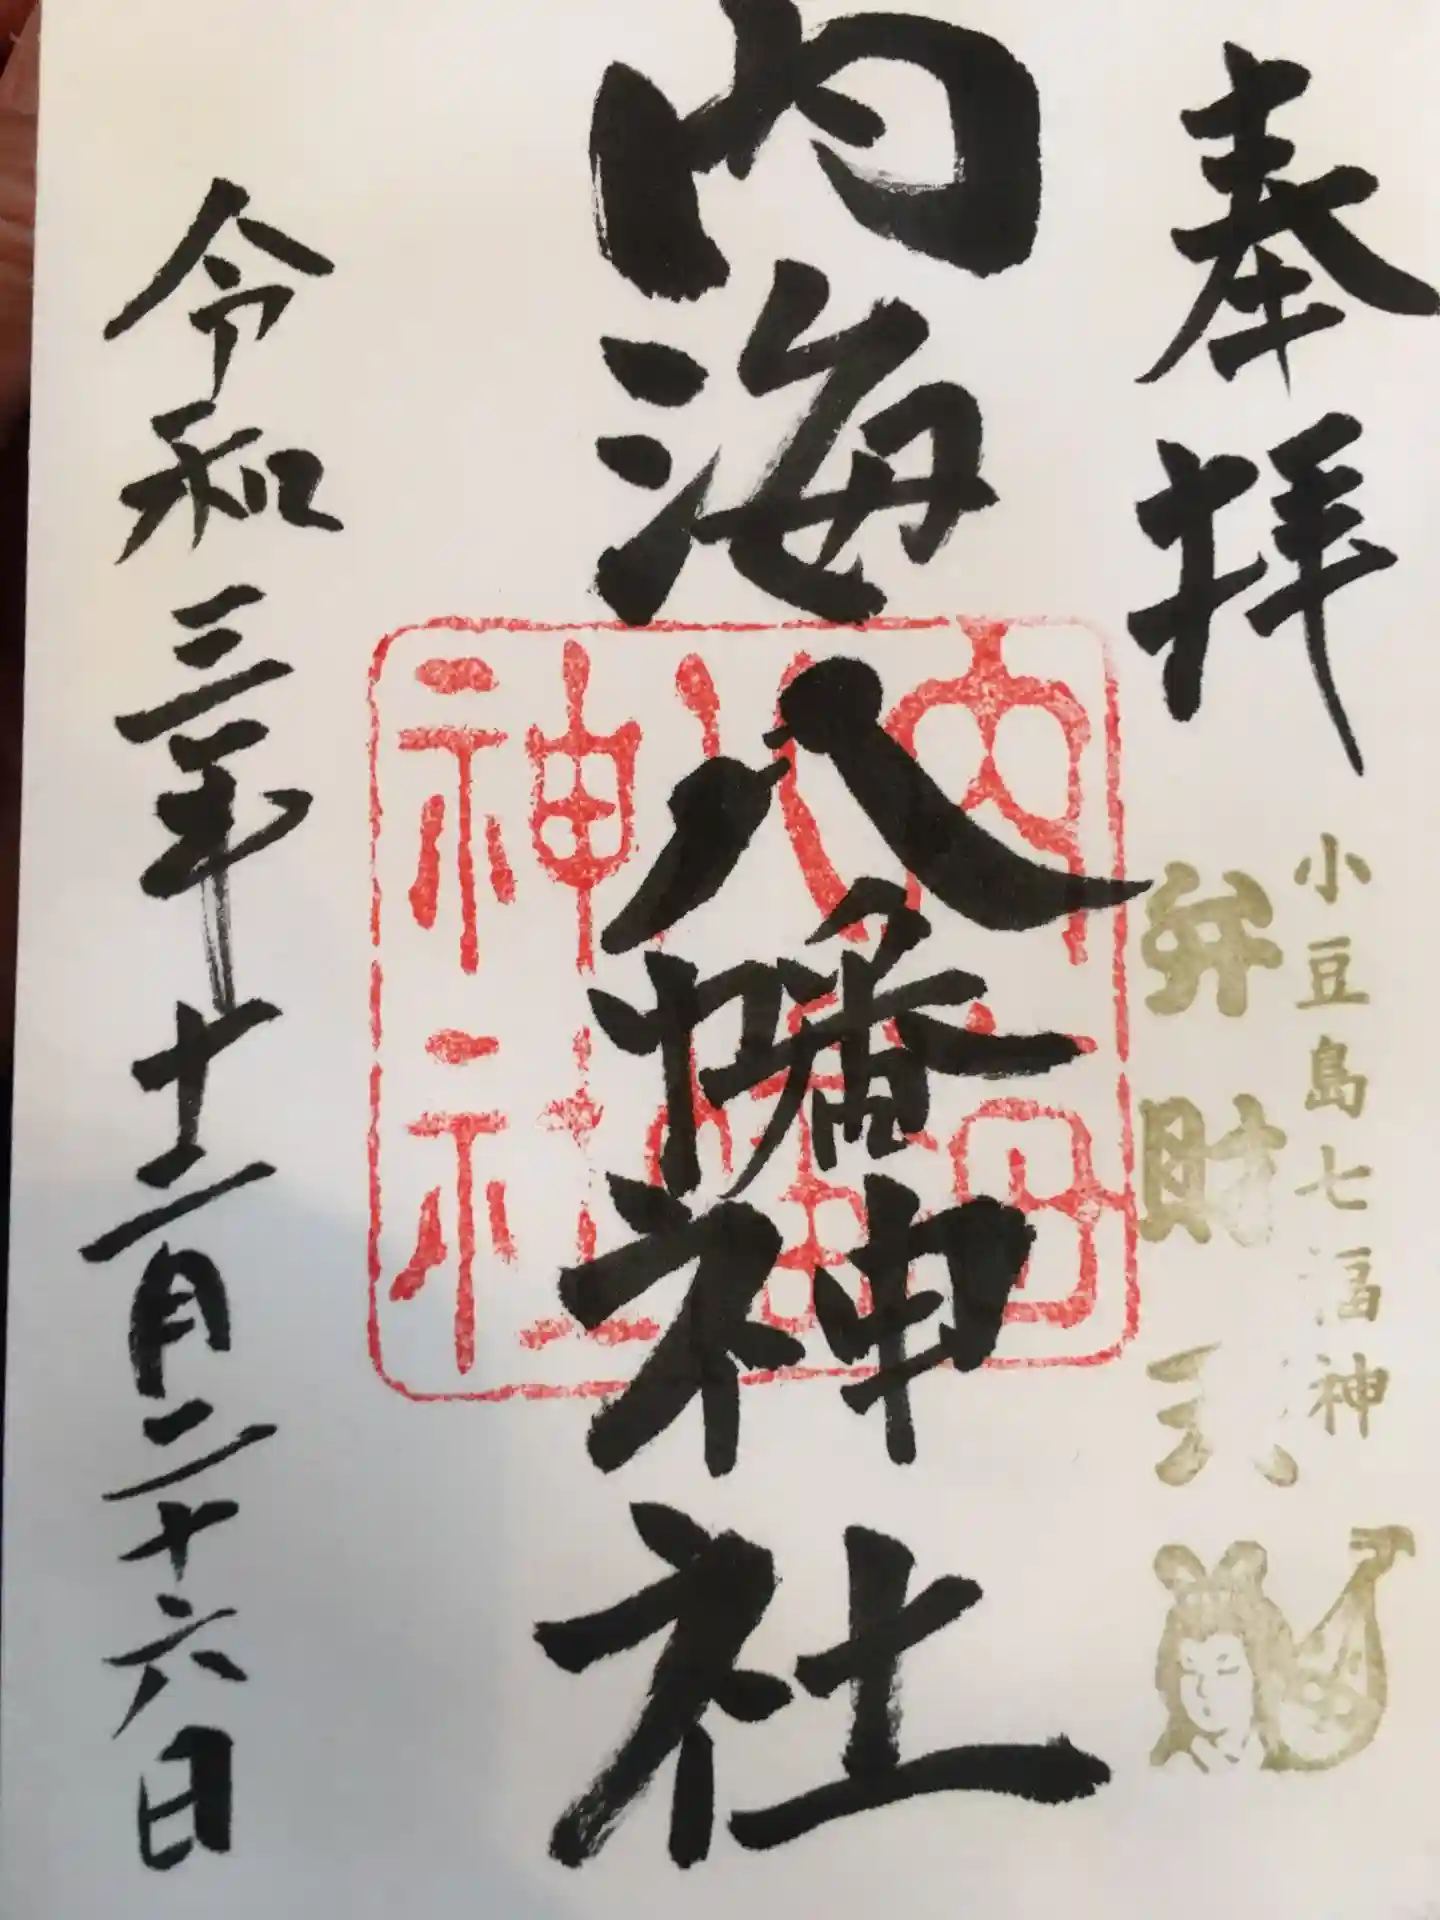 奉拝
小豆島七福神
弁財天
内海八幡神社
内海八幡神社
令和三年十二月二十六日